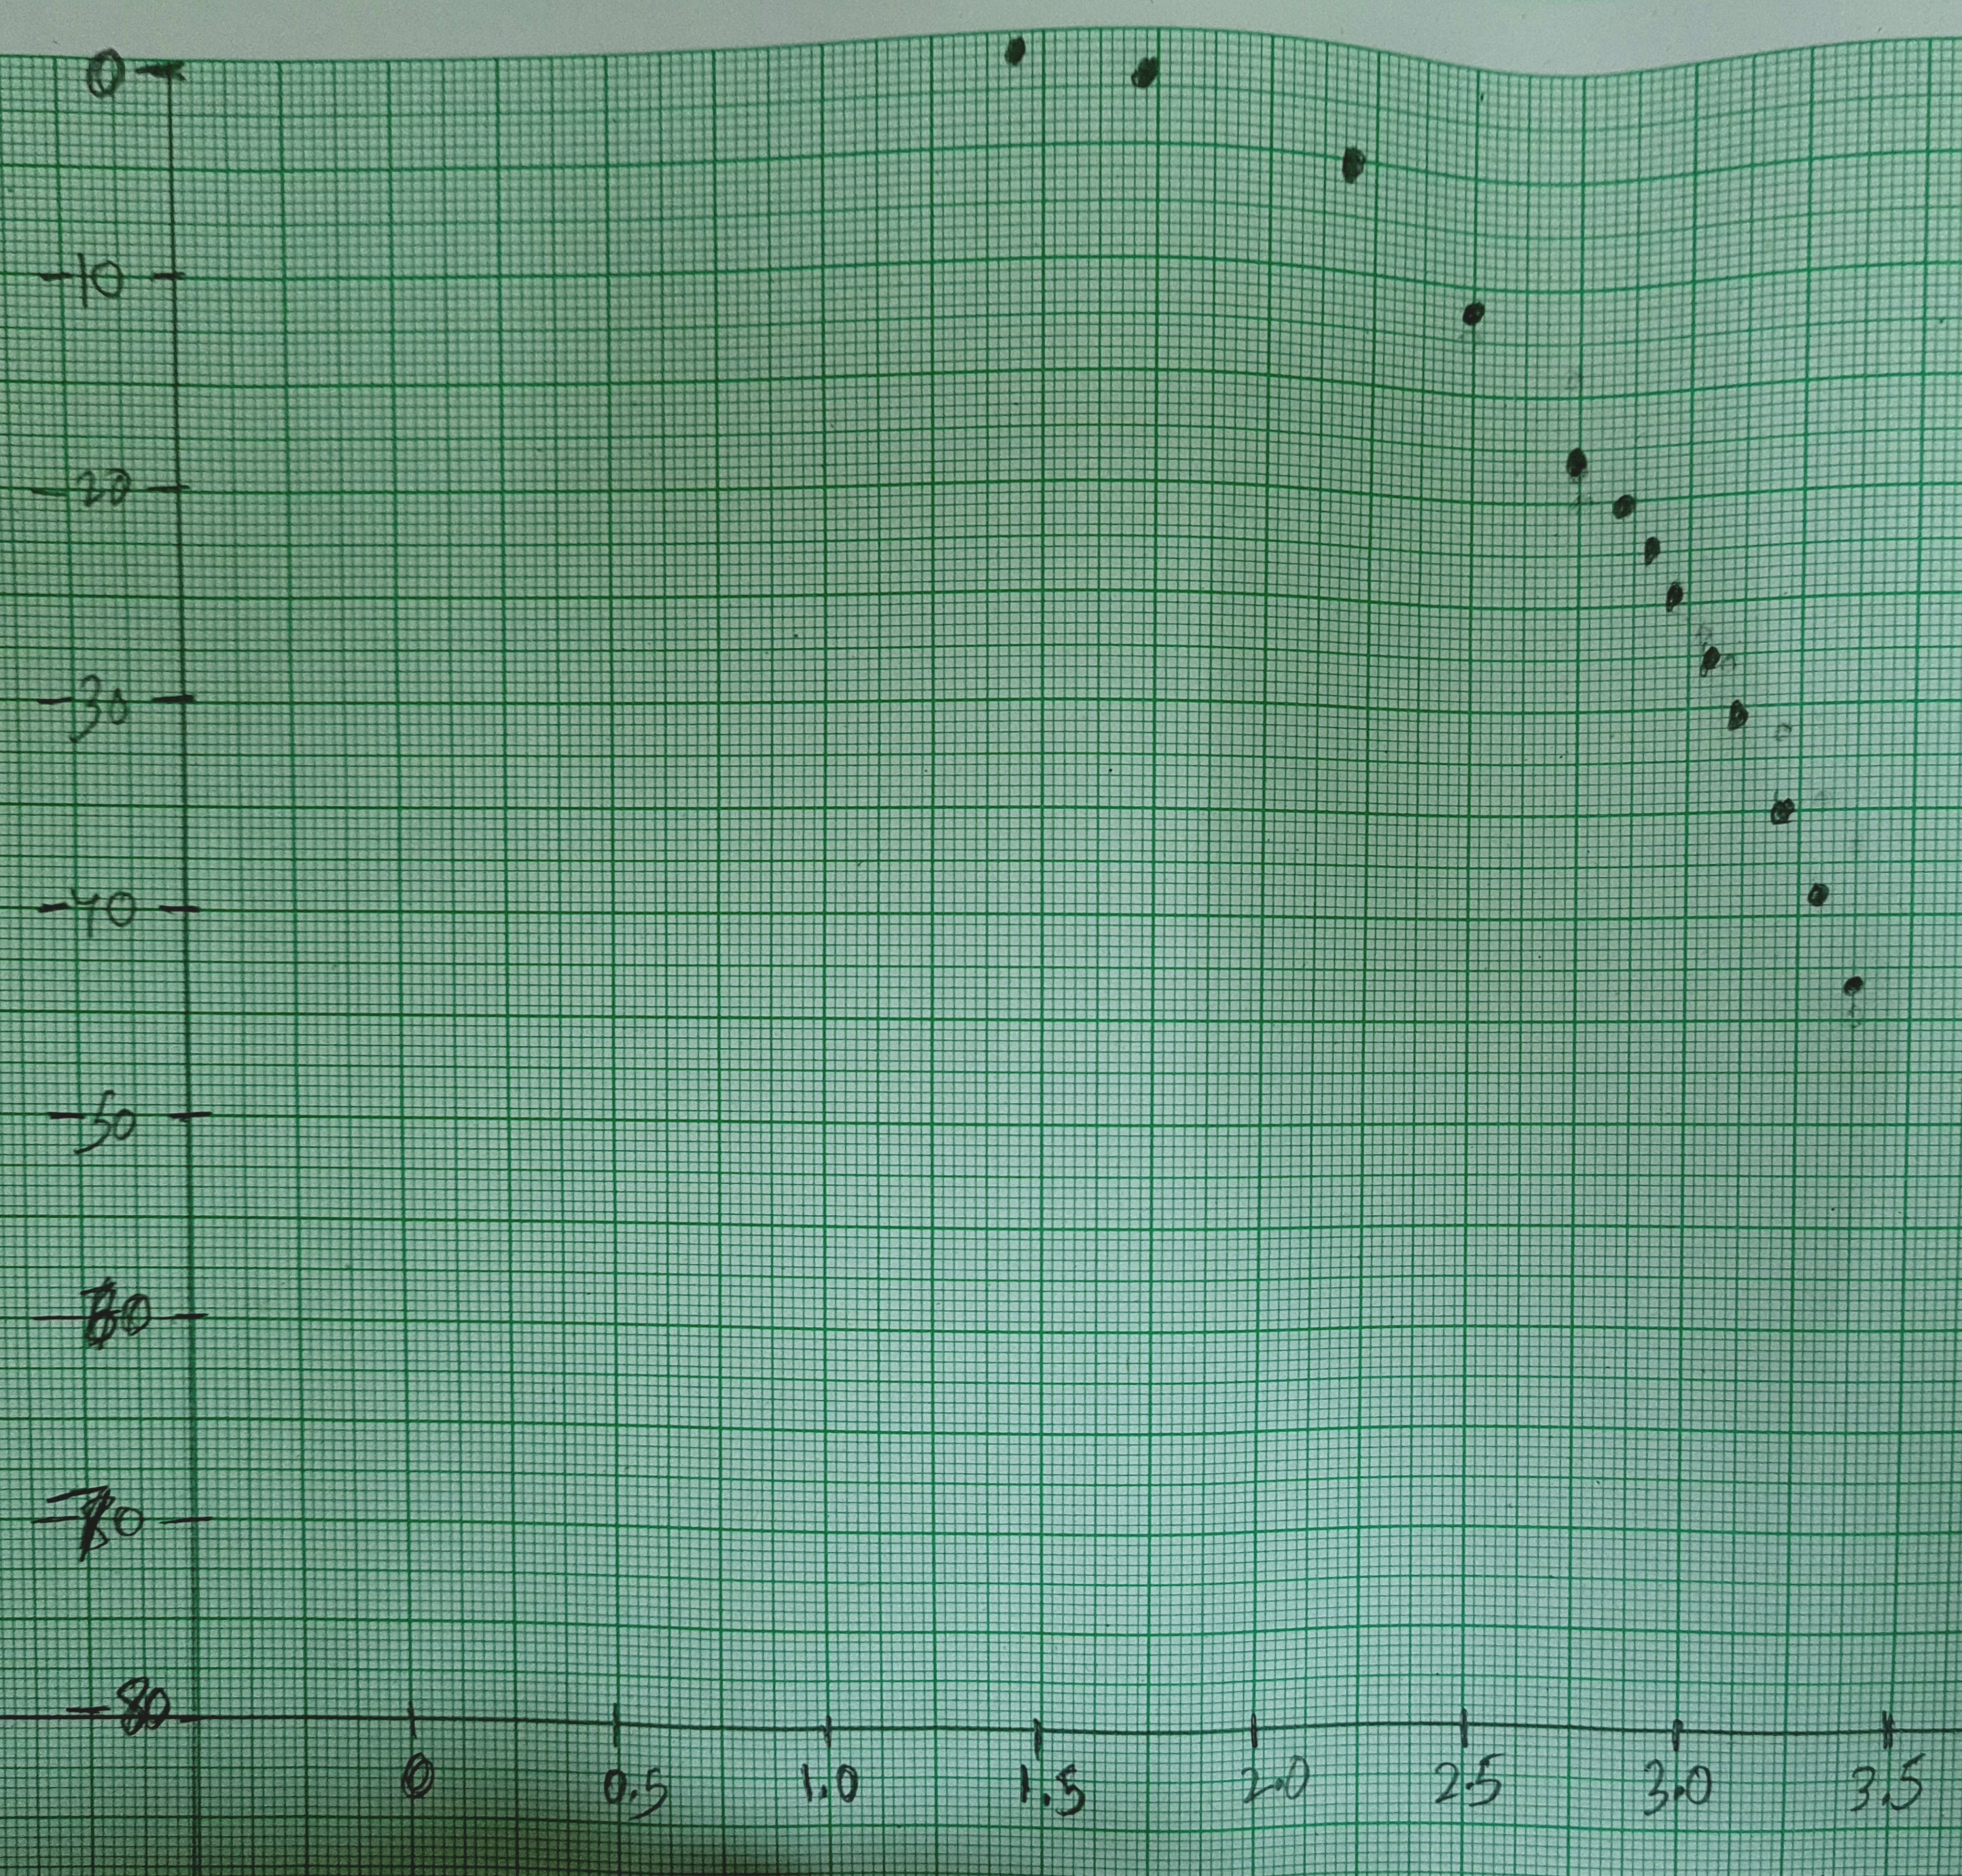 0
-10
-20
-30
-40
-50
-80
0 0.5 1.0 1.5 2.0 2.5 3.0 3.5